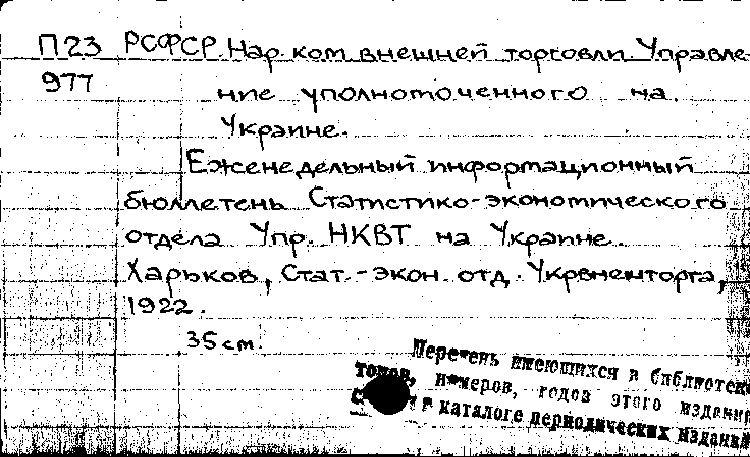 П23 РСФСР. Нар. ком. внешней торговли. Управле-
977 ние уполномоченного на
Украине.
Еженедельный информационный
бюллетень Статистико-экономического
отдела Упр. НКВТ на Украине.
Харьков, Стат.-экон. отд. Укрвнешторга,
1922.
35 см.
Перечень имеющихся в библиотеке
томов, номеров, годов этого издания
в каталоге периодических изданий